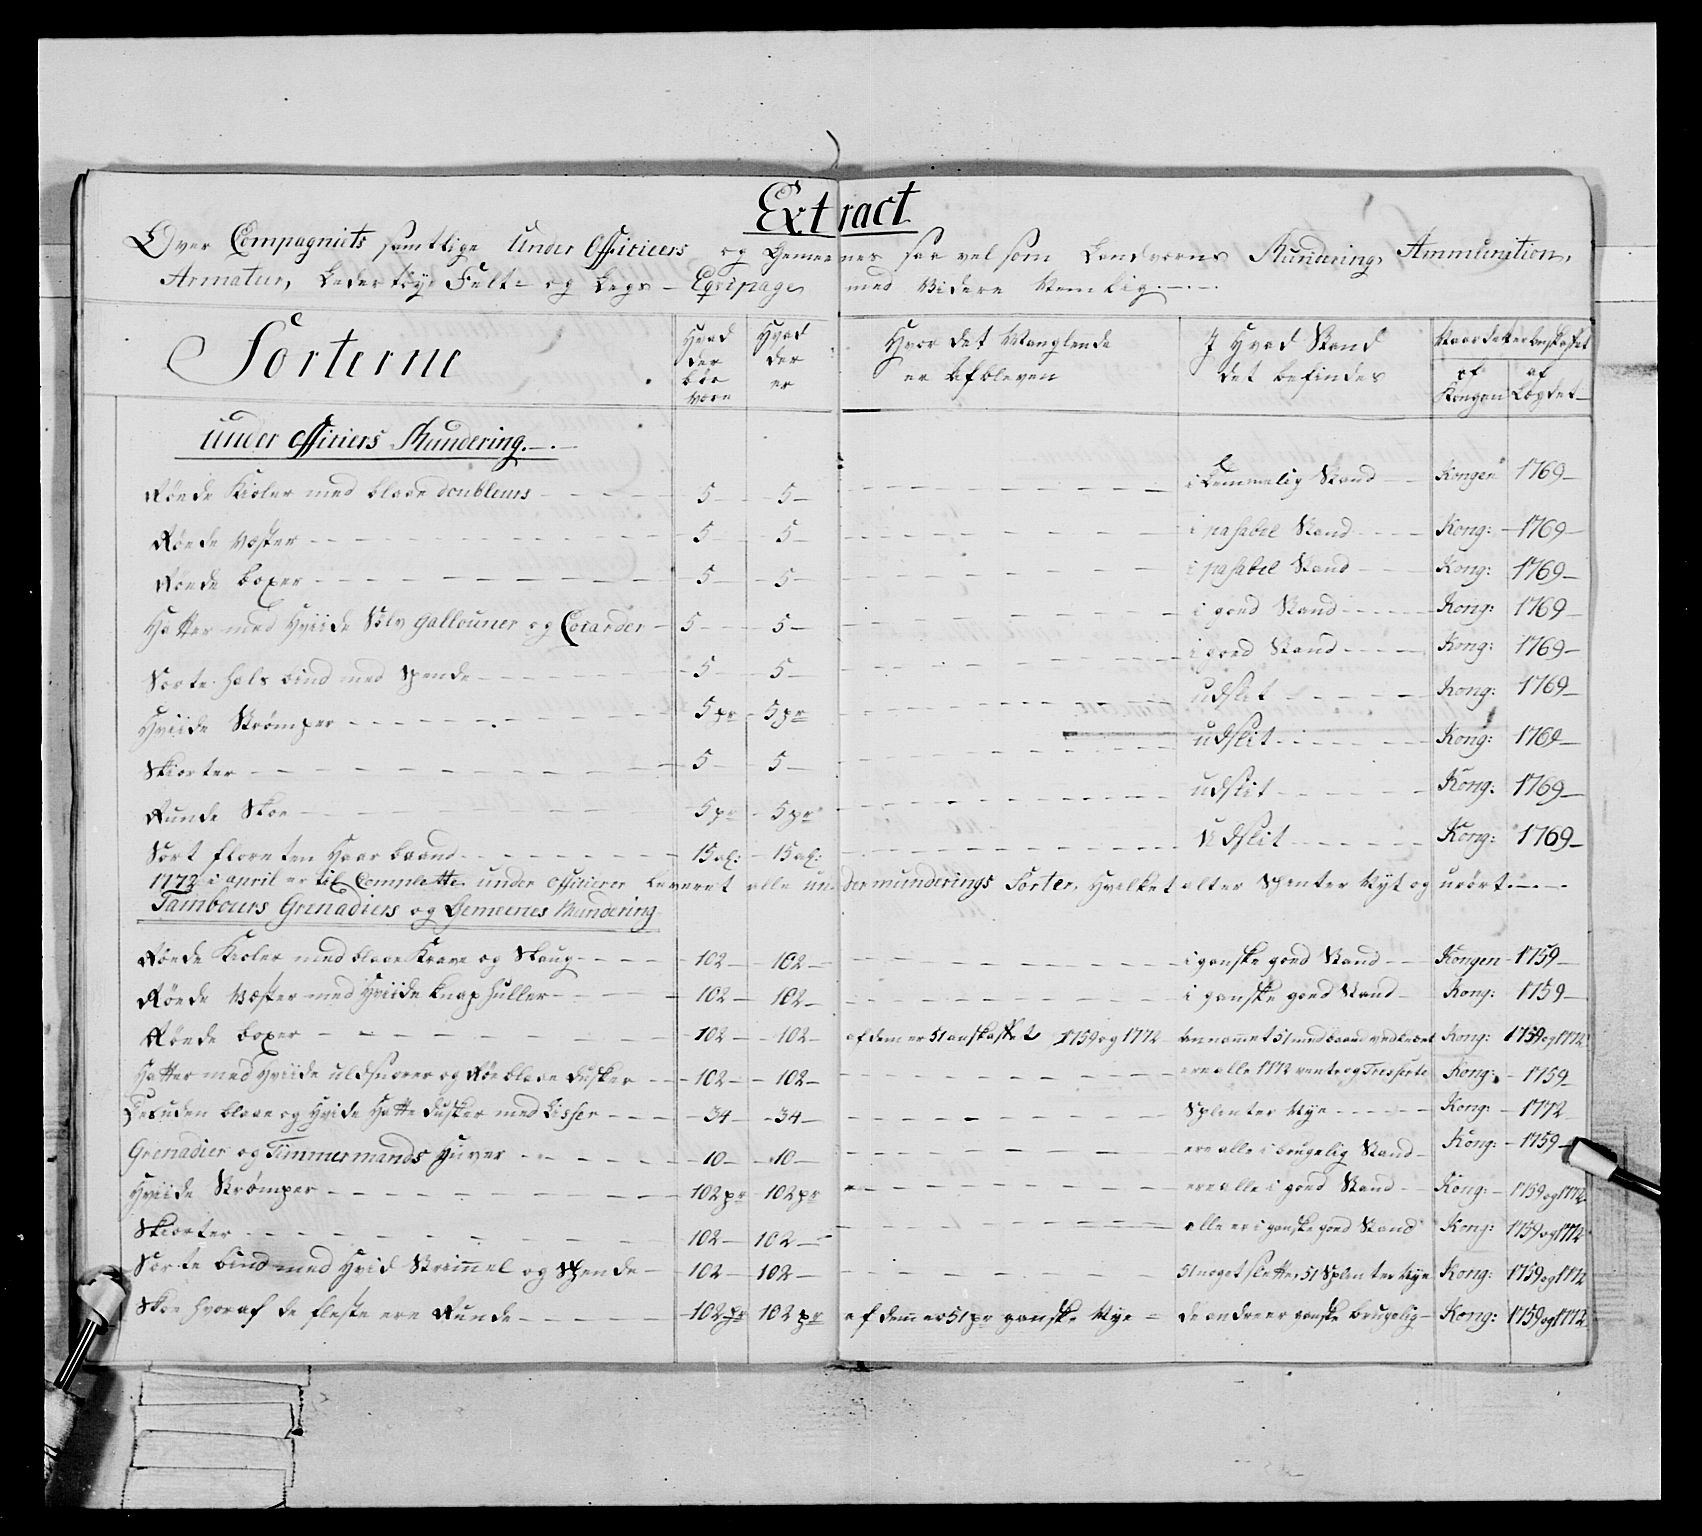 Extract
Over Compagniets samtlige Under Officiers og Gemeenes saa vel som Landværns Mundering, Ammunition,
Armatur, Ledertöy, Felt- og Legs-Eqvipage med Videre Nemlig.
Sorterne
Hvad der bör være
Hvad der er
Hvor det Manglende er Afbleven
I Hvad Stand det befindes
Naar det er Anskaffet
af Kongen
af Lægdet
Under Officiers Mundering.
Röede Kioler med blaae doubleurs 5 5 i Lemmelig Stand Kongen 1769
Röede Væster 5 5 i pasabel Stand Kong: 1769
Röede boxer 5 5 i pasabel Stand Kong: 1769
Hatter med Hviide Sölv Gallouner og Cocarder 5 5 i goed Stand Kong: 1769
Sorte Hals bind med Spende 5 5 i goed Stand Kong: 1769
Hviide Strømper 5 pr 5 pr udslit Kong: 1769
Skiorter 5 5 udslit Kong: 1769
Runde Skoe 5 pr 5 pr udslit Kong: 1769
Sort floretten Haar baand 15 al: 15 al: Udslit Kong: 1769
1772 i april er til Complette under officierer leveret alle under munderings Sorter, Hvilket alter Splenter Nyt og urört.
Tambours Grenadiers og Gemeenes Mundering
Röede Kioler med blaae Krave og Slaug 102 102 i ganske goed Stand Kongen 1759
Röede Væster med Hviide knap huller 102 102 i ganske goed Stand Kong: 1759
Röede boxer 102 102 af dem er 51 anskaffet 1759 og 1772 51 med baand Kong: 1759 og 1772
Hatter med Hviide uldsnorer og Röe blaae dusker 102 102 ere alle 1772 vente og Kong: 1759
Desuden blaae og Hvide Hatte dusker med Lisser 34 34 Splenter Nye Kong: 1772
Grenadier og Timmermands Huver 10 10 ere alle i brugelig Stand Kong: 1759
Hviide Strømper 102 pr 102 pr ere alle i goed Stand Kong: 1759 og 1772
Skiorter 102 102 alle er i ganske goed Stand Kong: 1759 og 1772
Sorte bind med Hvid Strimmel og Spende 102 102 51 noget slette, 51 Splenter Nye Kong: 1759 og 1772
Skoe hvoraf de fleste ere Runde 102 pr 102 pr af dem er 51 pr ganske Nye de andre er ganske brugelig Kong: 1759 og 1772